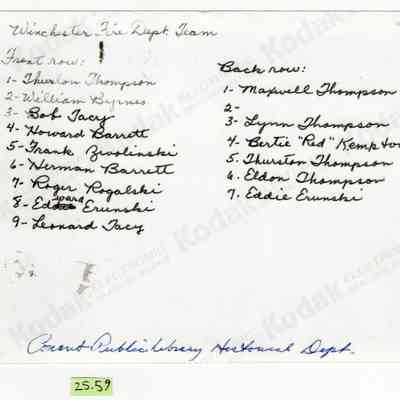 Winchester Fire Dept. Team
Front row:
1- Thurston Thompson
2- William Byrnes
3- Bob Tacy
4- Howard Barrett
5- Frank Zwolinski
6- Herman Barrett
7- Roger Rogalski
8- Edward Erunski
9- Leonard Tacy
Back row:
1- Maxwell Thompson
2-
3- Lynn Thompson
4- Bertie "Red" Kempton
5- Thurston Thompson
6. Eldon Thompson
7. Eddie Erunski
Conant Public Library Historical Dept.
25.59
Kodak